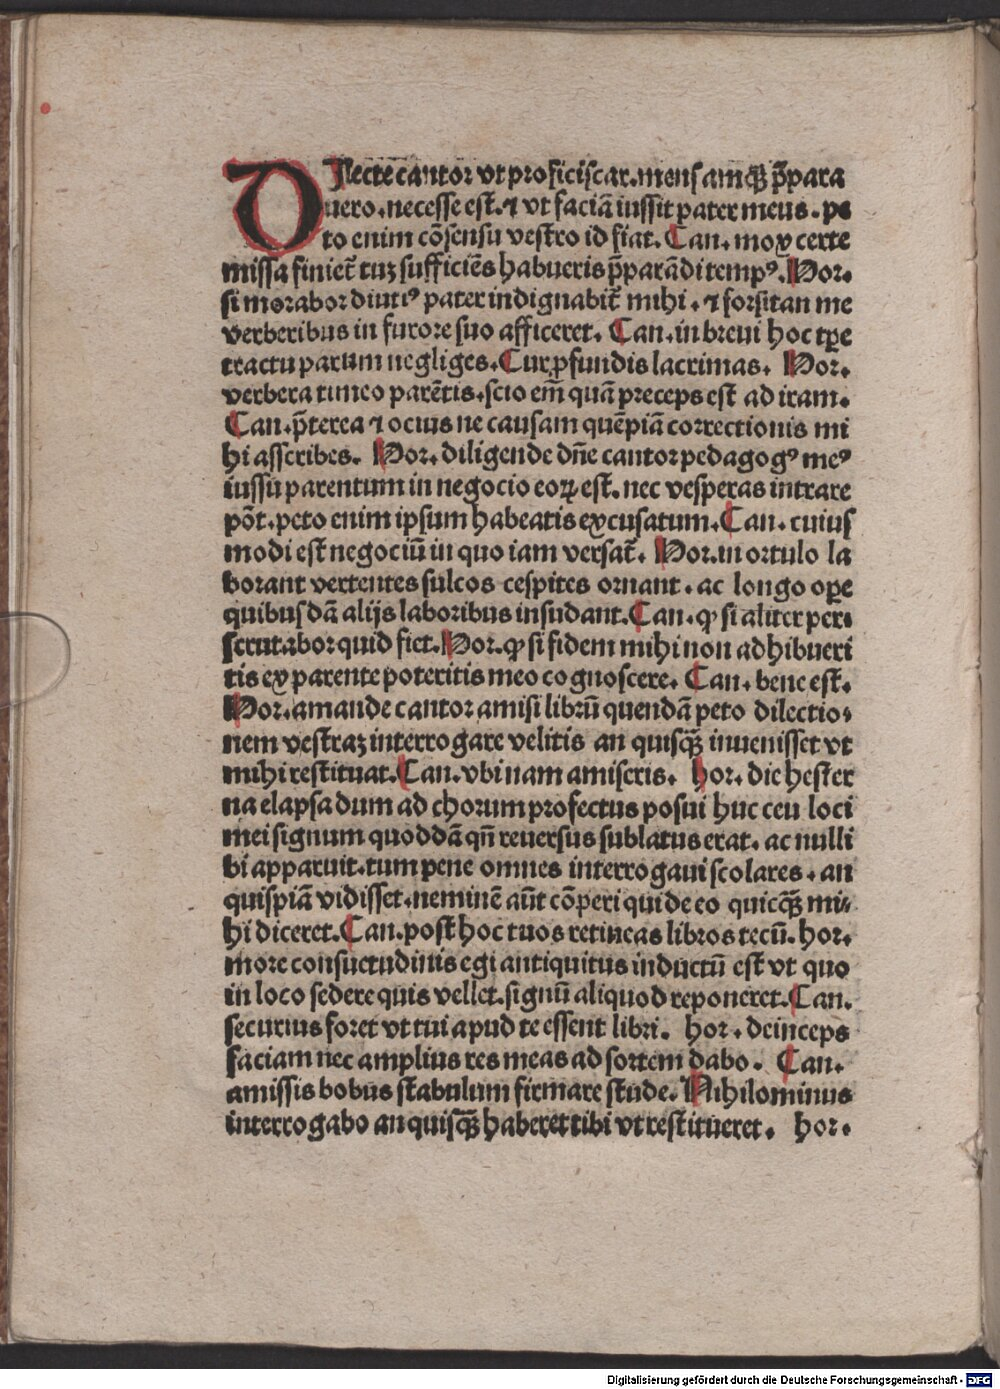 DIlecte cantor vt proficiscar. mensamqꝫ p̄para
uero. necesse est. ⁊ vt faciā iussit pater meus. pe
to enim cōsensu vestro id fiat. Can. mox certe
missa finiet᷑ tuꝫ sufficiēs habueris p̄parādi tempꝰ. Hor.
si morabor diutiꝰ pater indignabit᷑ mihi. ⁊ forsitan me
verberibus in furore suo afficeret. Can. in breui hoc tꝑe
tractu parum negliges. Cur ꝓfundis lacrimas. Hor.
verbera timeo parētis. scio em̄ quā preceps est ad iram.
Can. p̄terea ⁊ ocius ne causam quēpiā correctionis mi
hi asscribes. Hor. diligende dn̄e cantor pedagogꝰ meꝰ
iussu parentum in negocio eoꝝ est. nec vesperas intrare
pōt. peto enim ipsum habeatis excusatum. Can. cuius
modi est negociū in quo iam versat᷑. Hor. in ortulo la
borant vertentes sulcos cespites ornant. ac longo oꝑe
quibusdā alijs laboribus insudant. Can. ꝙ si aliter per-
scrutabor quid fiet. Hor. ꝙ si fidem mihi non adhibueri
tis ex parente poteritis meo cognoscere. Can. bene est.
Hor. amande cantor amisi librū quendā peto dilectio-
nem vestraꝫ interrogare velitis an quisqꝫ inuenisset vt
mihi restituat. Can. vbi nam amiseris. hor. die hester
na elapsa dum ad chorum profectus posui huc ceu loci
mei signum quoddā qn̄ reuersus sublatus erat. ac nulli
bi apparuit. tum pene omnes interrogaui scolares. an
quispiā vidisset. neminē aūt cōperi qui de eo quicqꝫ mi-
hi diceret. Can. post hoc tuos retineas libros tecū. hor.
more consuetudinis egi antiquitus inductū est vt quo
in loco sedere quis vellet. signū aliquod reponeret. Can.
securius foret vt tui apud te essent libri. hor. deinceps
faciam nec amplius res meas ad sortem dabo. Can.
amissis bobus stabulum firmare stude. Nihilominus
interrogabo an quisqꝫ haberet tibi vt restitueret. hor.
Digitalisierung gefördert durch die Deutsche Forschungsgemeinschaft - DFG